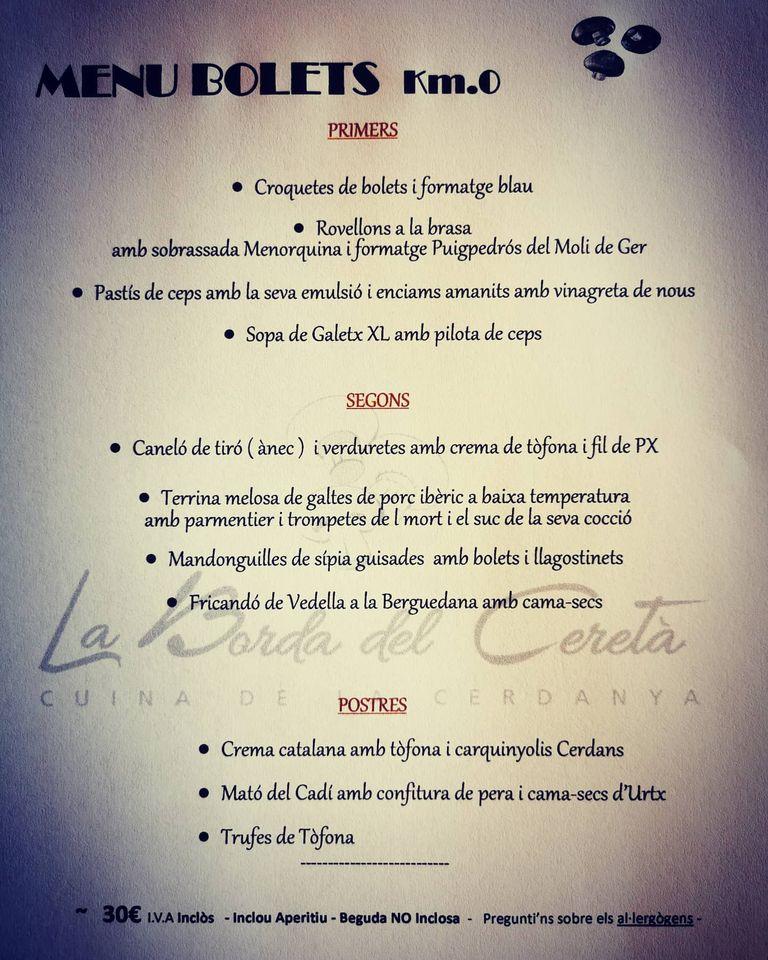 MENU BOLETS Km.0
PRIMERS
• Croquetes de bolets i formatge blau
• Rovellons a la brasa
amb sobrassada Menorquina i formatge Puigpedrós del Moli de Ger
• Pastís de ceps amb la seva emulsió i enciams amanits amb vinagreta de nous
• Sopa de Galetx XL amb pilota de ceps
SEGONS
• Caneló de tiró ( ànec ) i verduretes amb crema de tòfona i fil de PX
• Terrina melosa de galtes de porc ibèric a baixa temperatura
amb parmentier i trompetes de l mort i el suc de la seva cocció
• Mandonguilles de sípia guisades amb bolets i llagostinets
• Fricandó de Vedella a la Berguedana amb cama-secs
La Borda del Ceretà
CUINA DE LA CERDANYA
POSTRES
• Crema catalana amb tòfona i carquinyolis Cerdans
• Mató del Cadí amb confitura de pera i cama-secs d'Urtx
• Trufes de Tòfona
---------------------------
~ 30€ I.V.A Inclòs - Inclou Aperitiu - Beguda NO Inclosa - Pregunti'ns sobre els al·lergògens -